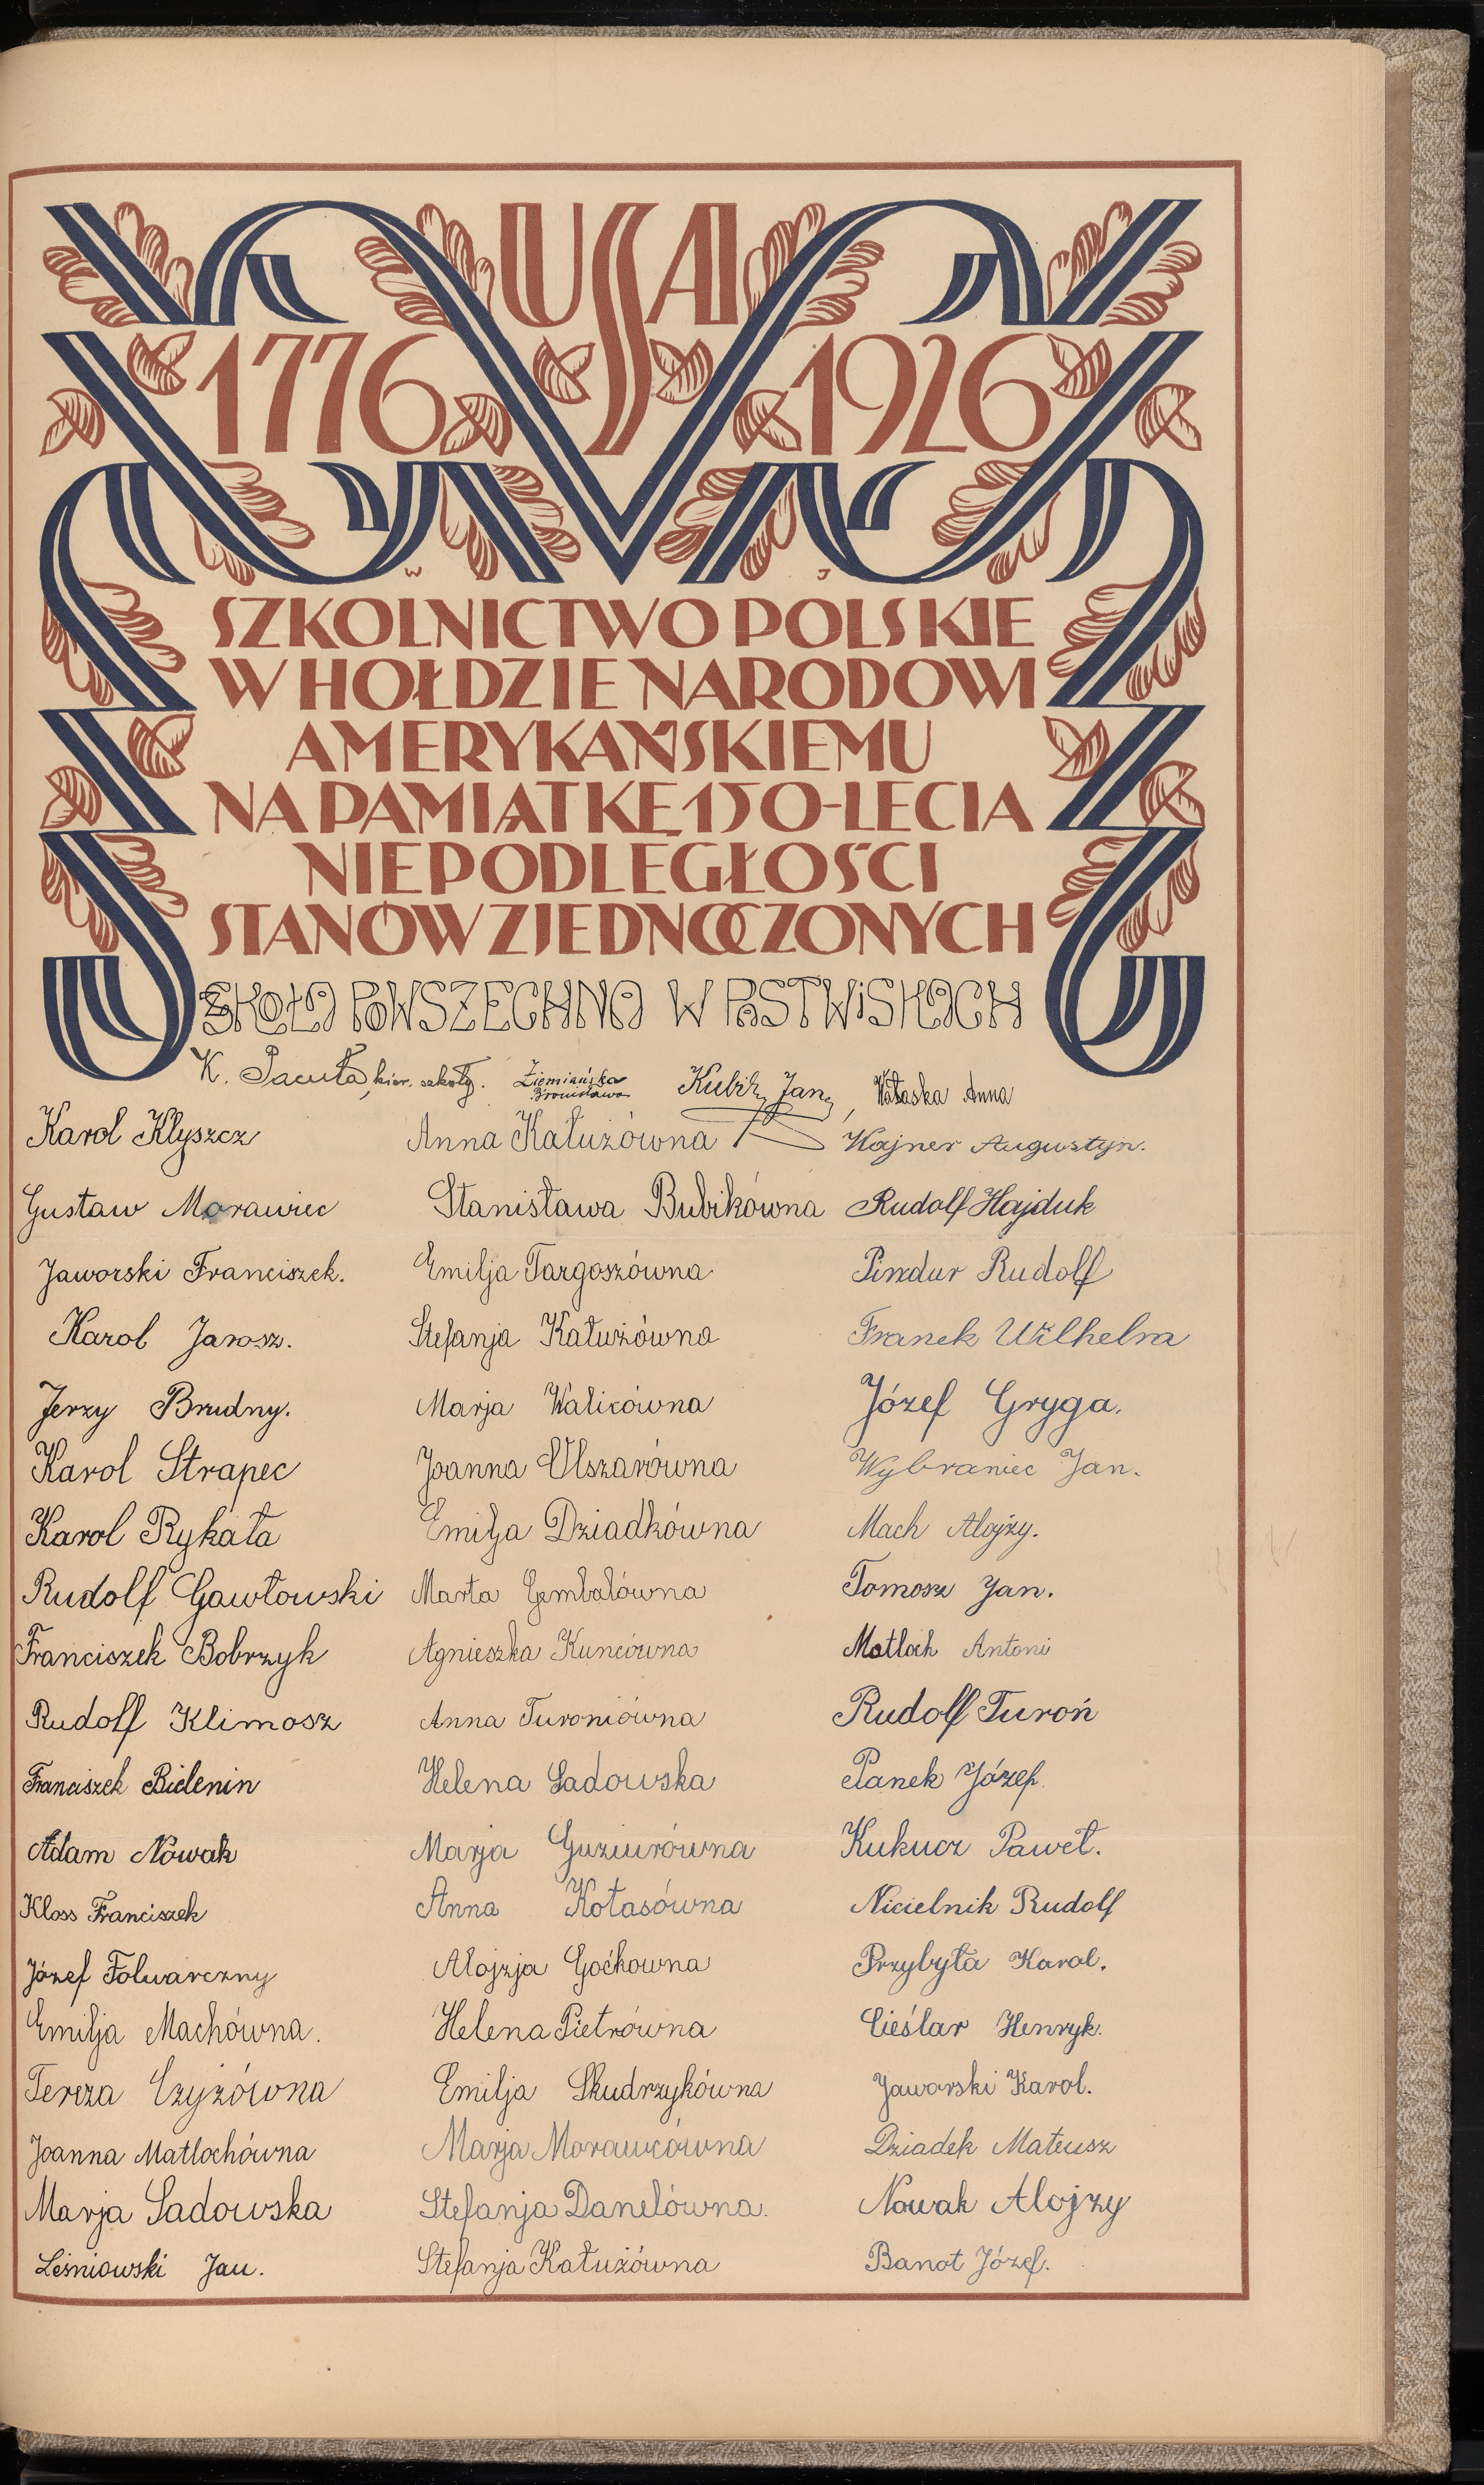 USA
1776 1926
W J
SZKOLNICTWO POLSKIE
W HOŁDZIE NARODOWI
AMERYKAŃSKIEMU
NA PAMIĄTKĘ 150-LECIA
NIEPODLEGŁOŚCI
STANÓW ZJEDNOCZONYCH
SZKOŁA POWSZECHNA W PASTWISKACH
K. Pacuła, kier. szkoły. Ziemiańska Bronisława Kubik Jan, Wałaska Anna
Karol Klyszcz Anna Kałużówna Wajner Augustyn.
Gustaw Morawiec Stanisława Bubikówna Rudolf Hajduk
Jaworski Franciszek. Emilja Targoszówna Pindur Rudolf
Karol Jarosz. Stefanja Kałużówna Franek Wilhelm
Jerzy Brudny. Marja Walicówna Józef Gryga.
Karol Strapec Joanna Olszarówna Wybraniec Jan.
Karol Rykała Emilja Dziadkówna Mach Alojzy.
Rudolf Gawłowski Marta Gembalówna Tomosz Jan.
Franciszek Bobrzyk Agnieszka Kuncówna Matloch Antoni
Rudolf Klimosz Anna Turoniówna Rudolf Turoń
Franciszek Bielenin Helena Sadowska Panek Józef.
Adam Nowak Marja Guziurówna Kukucz Paweł.
Kloss Franciszek Anna Kotasówna Nicielnik Rudolf
Józef Folwarczny Alojzja Goćkowna Przybyła Karol.
Emilja Machówna. Helena Pietrówna Cieślar Henryk.
Tereza Czyżówna Emilja Skudrzykówna Jaworski Karol.
Joanna Matlochówna Marja Morawcówna Dziadek Mateusz
Marja Sadowska Stefanja Danelówna. Nowak Alojzy
Leśniowski Jan. Stefanja Kałużówna Banot Józef.